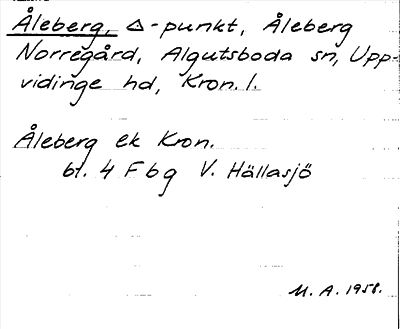 Åleberg, △-punkt, Åleberg
Norregård, Algutsboda sn, Upp-
vidinge hd, Kron. l.
Åleberg ek Kron.
bl. 4 F b g V. Hällasjö
M. A. 1958.